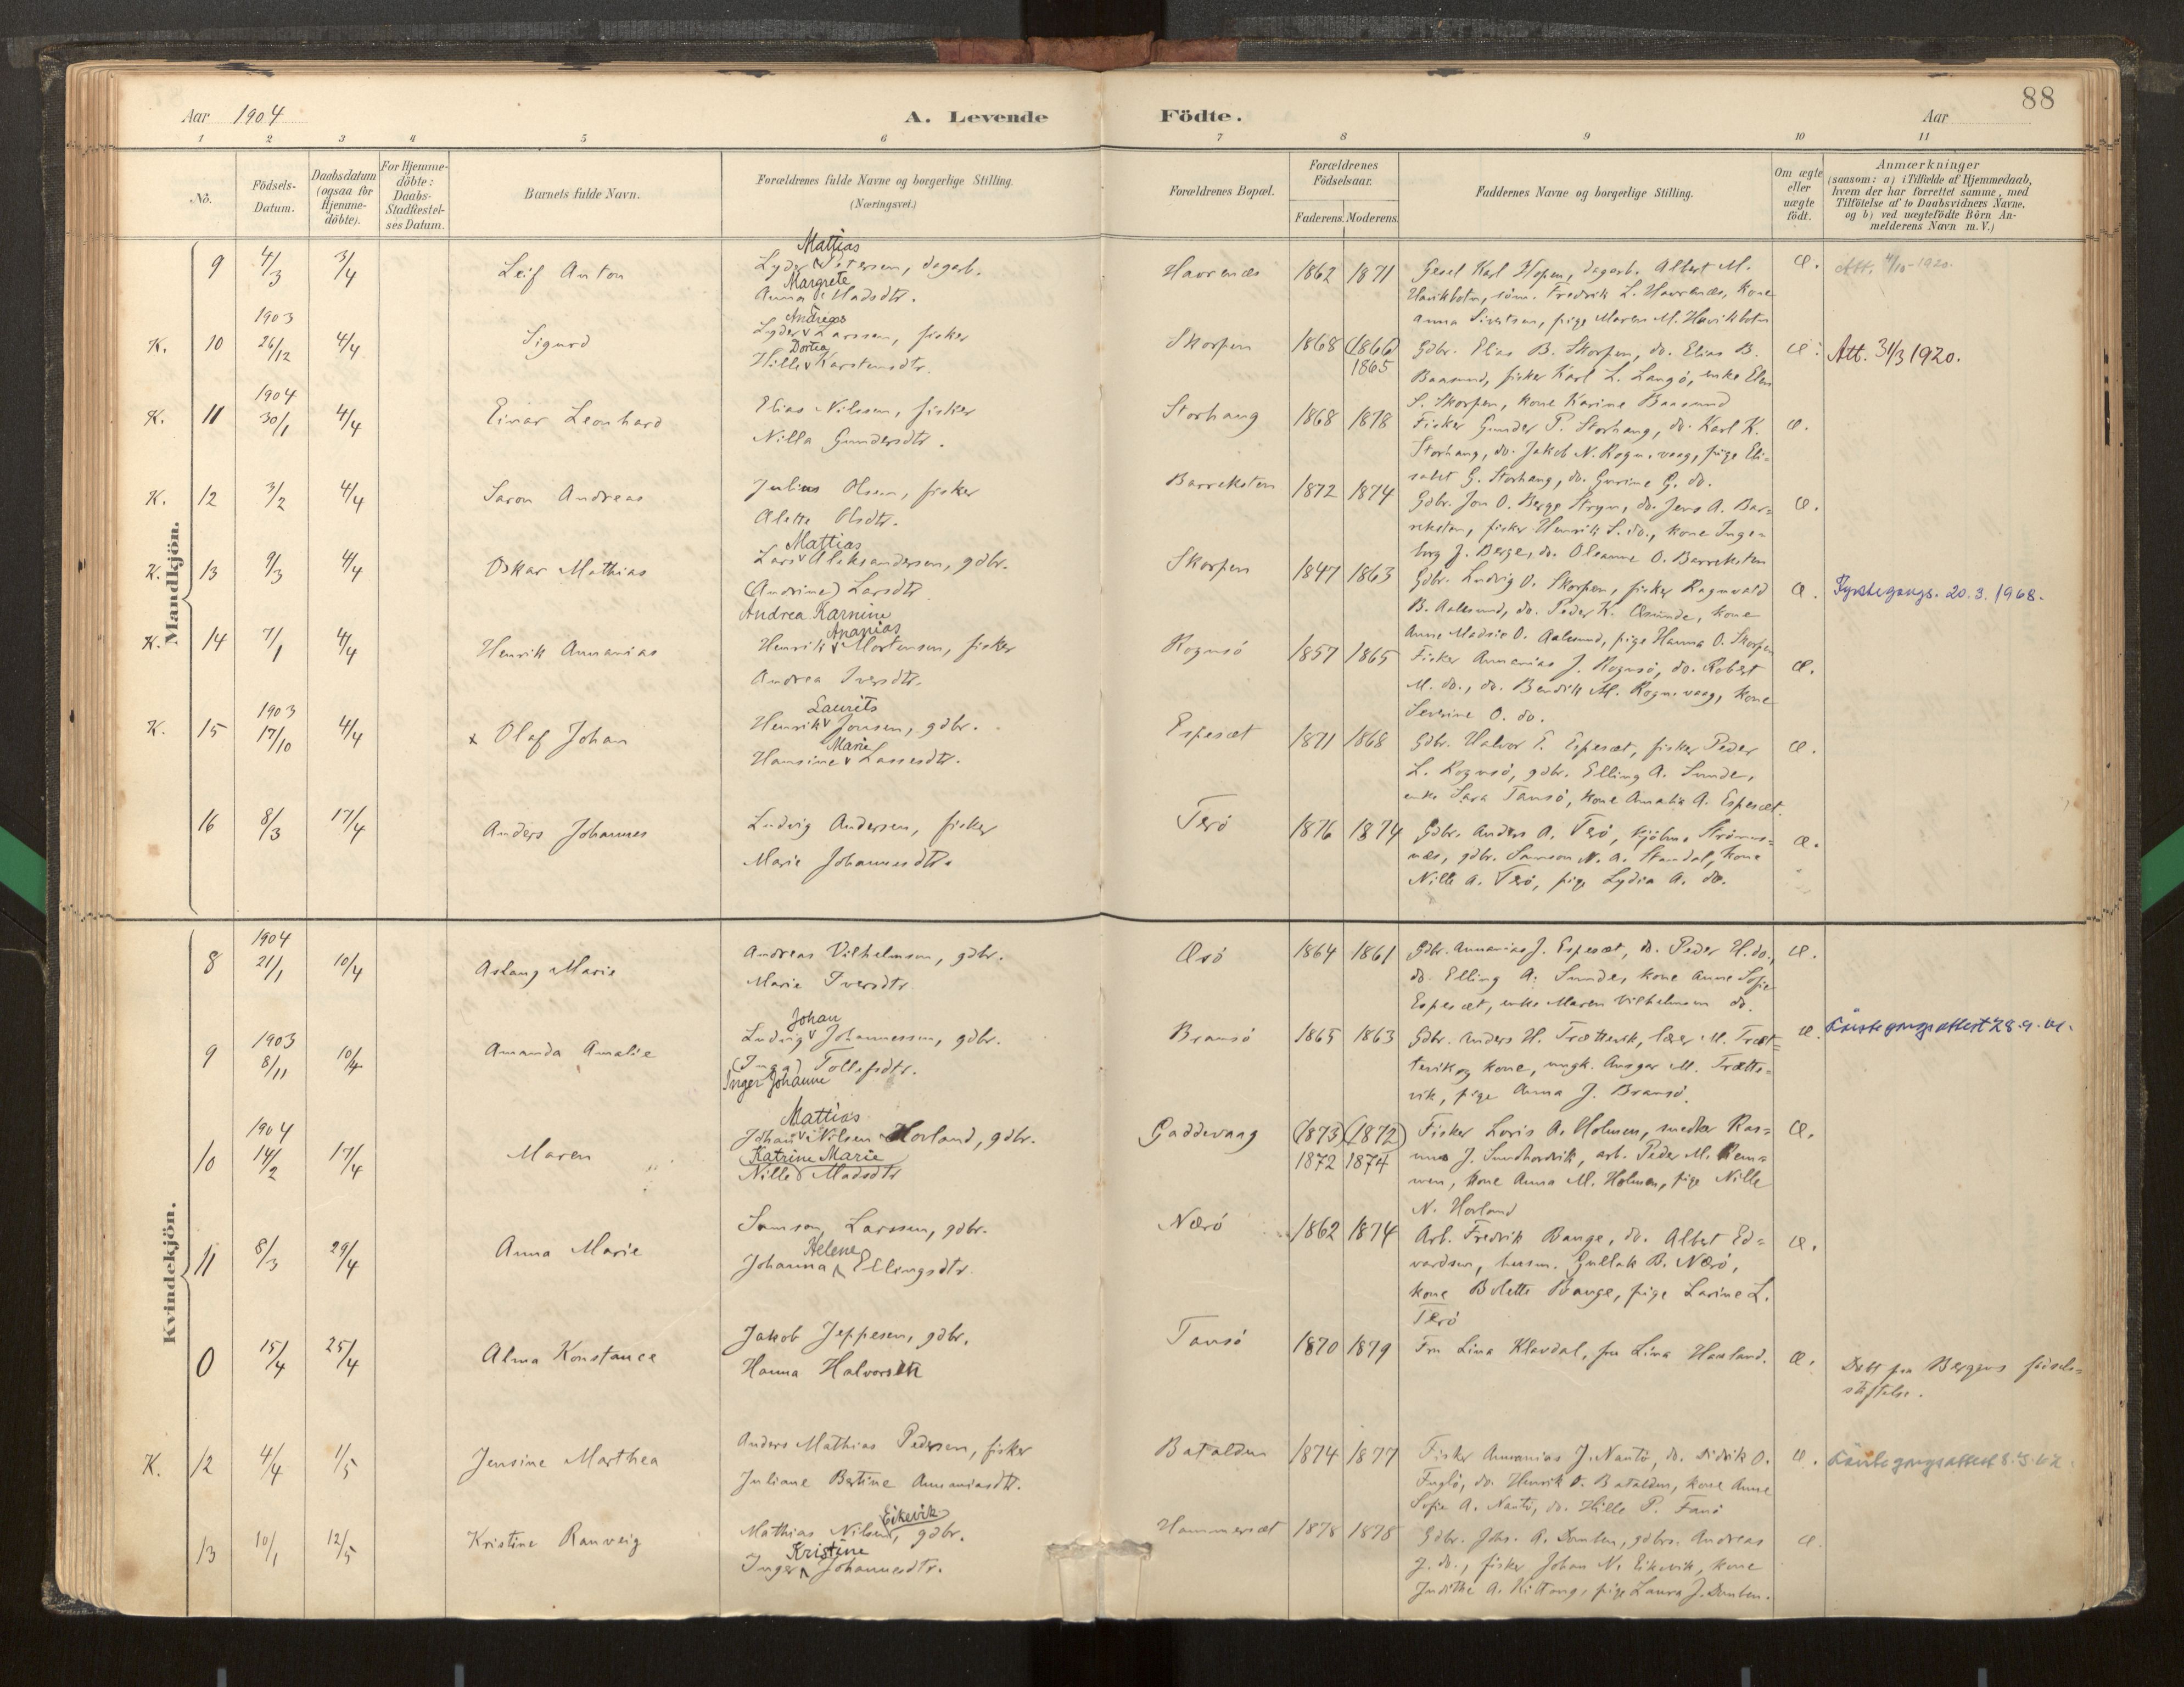 88
Aar 1904
A. Levende
Födte.
Aar
1 2 3 4 5 6 7 8 9 10 11
No.
Födsels-Datum.
Daabsdatum (ogsaa for Hjemme-döbte).
For Hjemme-döbte: Daabs-Stadfæstel-ses Datum.
Barnets fulde Navn.
Forældrenes fulde Navne og borgerlige Stilling.
(Næringsvei.)
Forældrenes Bopæl.
Forældrenes Födselsaar.
Faderens. Moderens.
Faddernes Navne og borgerlige Stilling.
Om ægte eller uægte födt.
Anmærkninger
(saasom: a) i Tilfælde af Hjemmedaab,
hvem der har forrettet samme, med
Tilföielse af to Daabsvidners Navne,
og b) ved uægtefödte Börn An-
melderens Navn m. V.)
Mandkjön.
9 4/3 3/4 Leif Anton
Mattias
Lyder Petersen, dagarb.
Margrete
Anna Madsdtr.
Havrenæs 1862 1871
Gesel Karl Hopen, dagarb. Albert M.
Havikbotn, söm. Fredrik L. Havrenæs, kone
Anna Sivertsen, pige Maren M. Havikbotn
Æ. Att. 4/10-1920.
K. 10 1903 26/12 4/4 Sigurd
Andreas
Lyder Larssen, fisker
Dortea
Hille Karstensdtr.
Skorpen 1868 (1866) 1865
Gdbr. Elias B. Skorpen, do. Elias B.
Baasund, fisker Karl L. Langö, enke Elen
S. Skorpen, kone Karine Baasund
Æ. Att. 31/3 1920.
K. 11 1904 30/1 4/4 Einar Leonhard
Elias Nilssen, fisker
Nilla Gundersdtr.
Storhaug 1868 1878
Fisker Gunder P. Storhaug, do. Karl K.
Storhaug, do. Jakob N. Rognevaag, pige Eli=
sabet G. Storhaug, do. Gurine G. do.
Æ.
K. 12 3/2 4/4 Saron Andreas
Julius Olsen, fisker
Alette Olsdtr.
Barreksten 1872 1874
Gdbr. Jon O. Berge Stryn, do. Jens A. Bar=
reksten, fisker Henrik S. do., kone Inge=
borg J. Berge, do. Oleanne O. Barreksten
Æ.
K. 13 9/3 4/4 Oskar Mathias
Mattias
Lars Aleksandersen, gdbr.
(Andrine) Larsdtr
Andrea Karnine
Skorpen 1847 1863
Gdbr. Ludvig O. Skorpen, fisker Ragnvald
B. Aalesund, do. Peder K. Osmunde, kone
Anne Madsie O. Aalesund, pige Hanna O. Skorpen
Æ. Fyrstegangs. 20.3.1968.
K. 14 7/1 4/4 Henrik Annanias
Ananias
Henrik Mortensen, fisker
Andrea Iversdtr.
Rognsö 1857 1865
Fisker Annanias J. Rognsö, do. Robert
M. do., do. Bendik M. Rognevaag, kone
Severine O. do.
Æ.
K. 15 1903 17/10 4/4 x Olaf Johan
Laurits
Henrik Jonsen, gdbr.
Marie
Hansine Lassesdtr.
Espesæt 1871 1868
Gdbr. Halvor E. Espesæt, fisker Peder
L. Rognsö, gdbr. Elling A. Sunde,
enke Sara Tansö, kone Amalia A. Espesæt.
Æ.
16 8/3 17/4 Anders Johannes
Ludvig Andersen, fisker
Marie Johannesdtr.
Terö 1876 1874
Gdbr. Anders A. Terö, kjöbm. Strömsnæs, gdbr. Samson N. A. Standal, kone
Nille A. Terö, pige Lydia A. do.
Æ.
Kvindekjön.
8 1904 21/1 10/4 Aslaug Marie
Andreas Vilhelmsen, gdbr.
Marie Iversdtr
Ærö 1864 1861
Gdbr. Annanias J. Espesæt, do. Peder H. do.,
do. Elling A. Sunde, kone Anne Sofie
Espesæt, enke Maren Vilhelmsen do.
Æ.
9 1903 8/11 10/4 Amanda Amalie
Johan
Ludvig Johannessen, gdbr.
(Inga) Tollefsdtr.
Inger Johanne
Bransö 1865 1863
Gdbr. Anders H. Trættevik, lærer M. Træt=
tevik og kone, ungk. Ansgar M. Trætte=
vik, pige Anna J. Bransö.
Æ.
10 1904 14/2 17/4 Maren
Mattias
Johan Nilsen Hovland, gdbr.
Katrine Marie
Nille Madsdtr
Gaddevaag (1873) (1872)
1872 1874
Fisker Loris A. Holmen, snedker Ras=
mus J. Sundhordvik, arb. Peder M. Rem=
men, kone Anna M. Holmen, pige Nille
N. Hovland
Æ.
11 8/3 29/4 Anna Marie
Samson Larssen, gdbr.
Helene
Johanna Ellingsdtr.
Nærö 1862 1874
Arb. Fredrik Bauge, do. Albert Ed=
vardsen, husm. Gullak B. Nærö,
kone Bolette Bauge, pige Larine L.
Terö
Æ.
0 15/4 25/4 Alma Konstance
Jakob Jeppesen, gdbr.
Hanna Halvorsdtr
Tansö 1870 1879
Fru Lina Klavdal, fru Lina Haaland.
Æ. Döbt paa Bergens födsels=
stiftelse.
K. 12 4/4 1/5 Jensine Marthea
Anders Mathias Pedersen, fisker
Juliane Bertine Annaniasdtr.
Batalden 1874 1877
Fisker Annanias J. Nautö, do. Didrik O.
Fuglö, do. Henrik O. Batalden, kone Anne
Sofie A. Nautö, do. Hille P. Fanö
Æ.
13 10/1 12/5 Kristine Ranveig
Eikevik
Mathias Nilsen, gdbr.
Kristine
Inger Johannesdtr.
Hammersæt 1878 1878
Gdbr. Johs. A. Domben, gdbrs. Andreas
J. do., fisker Johan N. Eikevik, kone
Judithe A. Kittang, pige Laura J. Domben.
Æ.